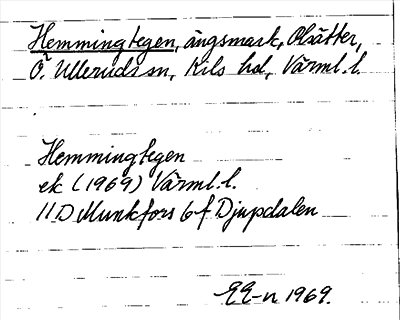 Hemmingtegen, ängsmark, Olsätter,
Ö. Ulleruds sn, Kils hd, Värml. l.
Hemmingtegen
ek (1969) Värml. l.
11D Munkfors 6f Djupdalen
EE-n 1969.